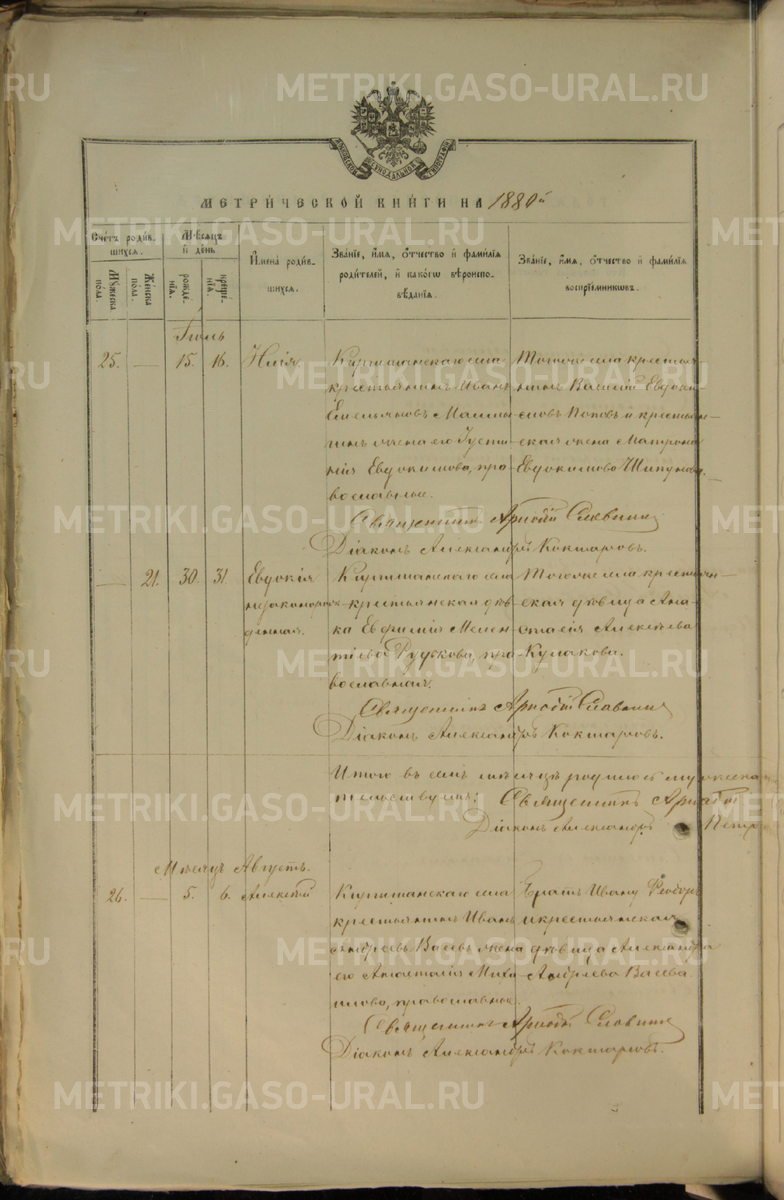 METRIKI.GASO-URAL.RU
МЕТРИЧЕСКОЙ КНИГИ НА 1880й
Счетъ родив-
шихся.
Мужеска пола.
Женска пола.
Мѣсяцъ и день
рожде-
нія.
креще-
нія.
Имена родив-
шихся.
Званіе, имя, отчество и фамилія
родителей, и какого вѣроиспо-
вѣданія.
Званіе, имя, отчество и фамилія
воспріемниковъ.
Іюль
25. — 15. 16. Илія.
села
крестьянинъ Иванъ
Емельяновъ
жена его Густи-
нія Евдокимова, пра-
вославные.
Тогоже села крестья-
нинъ Василій Евдоки-
мовъ Поповъ и крестьян-
ская жена Матрона
Евдокимова Шипунова.
Священникъ
Діаконъ Александръ Кокшаровъ.
— 21. 30. 31. Евдокія
незаконорож-
денная.
села
крестьянская дѣв-
ка Евфимія Мелен-
тіева, пра-
вославная.
Тогоже села крестьян-
ская дѣвица Ана-
стасія Алексѣева
Кулакова.
Священникъ
Діаконъ Александръ Кокшаровъ.
Итого въ семъ мѣсяцѣ родилось мужеска
Священникъ
Діаконъ Александръ
Мѣсяцъ Августъ.
26. — 5. 6. Алексѣй
села
крестьянинъ Иванъ
Андреевъ Васевъ жена
его Анастасія Миха-
илова, православные.
Братъ Ивану Ѳеодоръ
и крестьянская
дѣвица Александра
Андреева Васева.
Священникъ
Діаконъ Александръ Кокшаровъ.